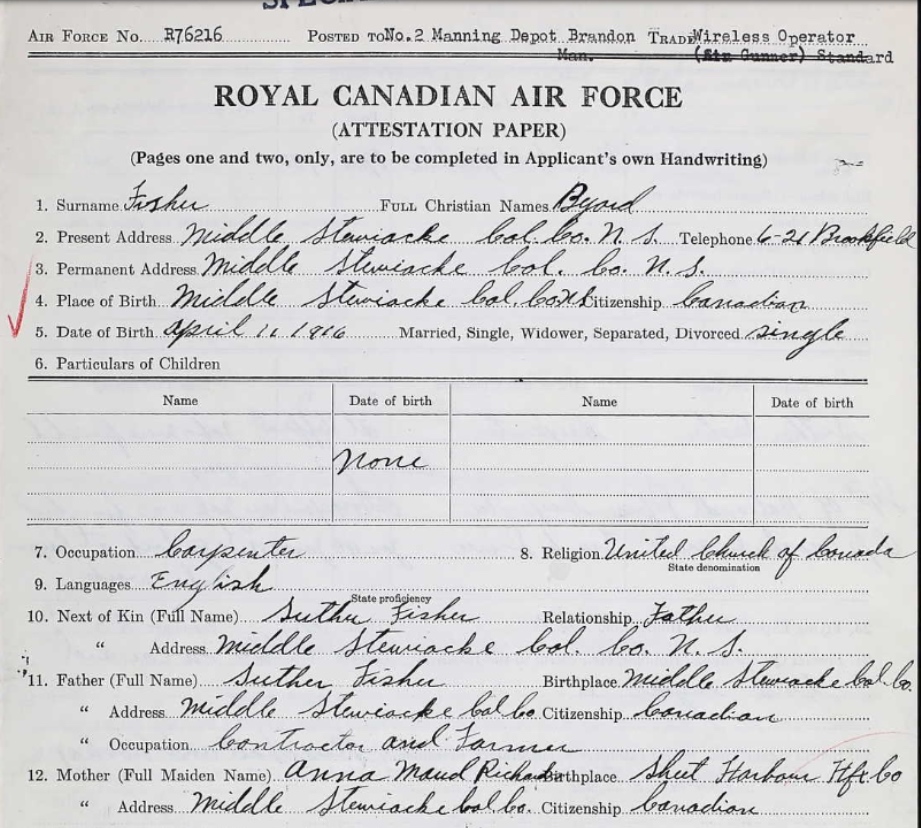 AIR FORCE NO. R76216 POSTED TO No.2 Manning Depot Brandon TRADE Wireless Operator
Man. (Air Gunner) Standard
ROYAL CANADIAN AIR FORCE
(ATTESTATION PAPER)
(Pages one and two, only, are to be completed in Applicant's own Handwriting)
1. Surname Fisher FULL Christian Names Byard
2. Present Address Middle Stewiacke Col. Co. N. S. Telephone 6-21 Brookfield
3. Permanent Address Middle Stewiacke Col. Co. N. S.
4. Place of Birth Middle Stewiacke Col. Co N S Citizenship Canadian
5. Date of Birth April 11 1916 Married, Single, Widower, Separated, Divorced Single
6. Particulars of Children
Name Date of birth Name Date of birth
None
7. Occupation Carpenter 8. Religion United Church of Canada
State denomination
9. Languages English
State proficiency
10. Next of Kin (Full Name) Fisher Relationship Father
" Address Middle Stewiacke Col. Co. N. S.
11. Father (Full Name) Fisher Birthplace Middle Stewiacke Col. Co.
" Address Middle Stewiacke Col Co. Citizenship Canadian
" Occupation Contractor and Farmer
12. Mother (Full Maiden Name) Anna Maud Birthplace Sheet Harbour Hfx Co
" Address Middle Stewiacke Col. Co. Citizenship Canadian